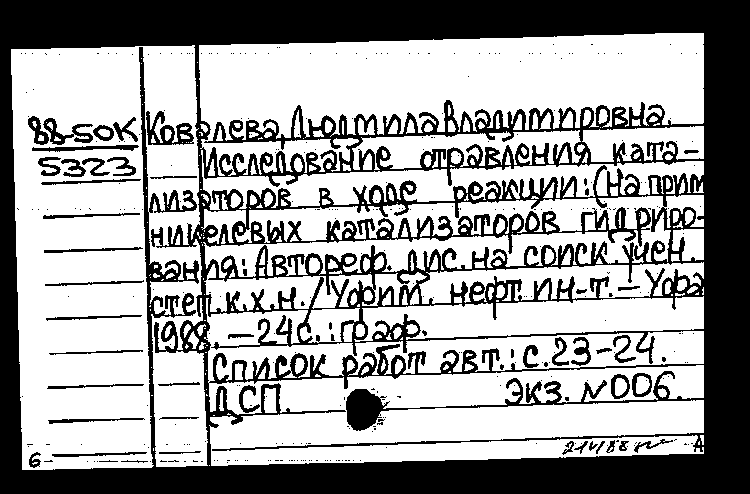 88-50К Ковалева, Людмила Владимировна.
5323 Исследование отравления ката-
лизаторов в ходе реакции: (На прим
никелевых катализаторов гидриро-
вания: Автореф. дис. на соиск. учен.
степ. к.х.н. / Уфим. нефт. ин-т. – Уфа
1988. – 24с. : граф.
Список работ авт.: с. 23-24.
ДСП. Экз. N 006.
6 А